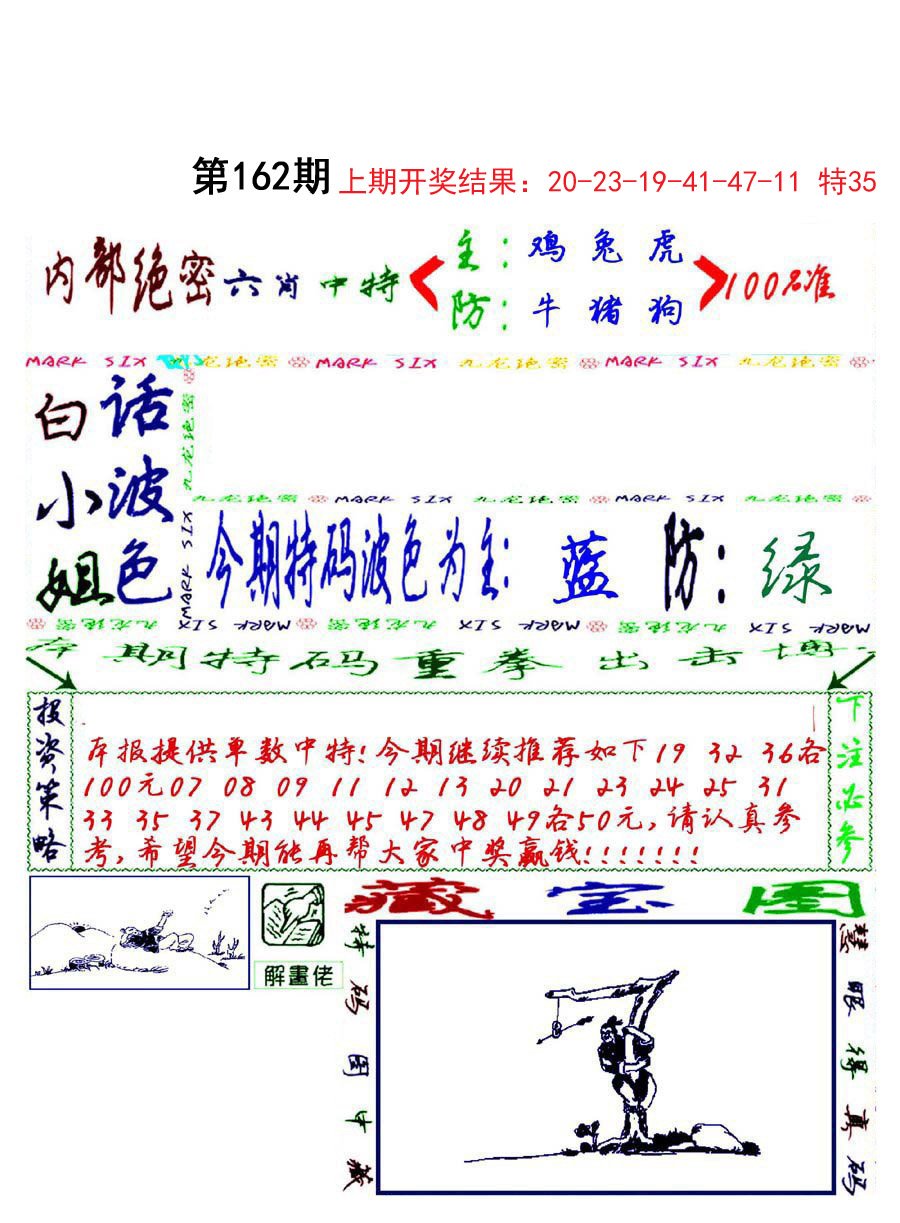 第162期 上期开奖结果：20-23-19-41-47-11 特35
内部绝密六肖中特
主：鸡兔虎
防：牛猪狗
100%准
MARK SIX 九龙绝密 MARK SIX 九龙绝密 MARK SIX 九龙绝密
白话
小波
姐色
九龙绝密 MARK SIX
九龙绝密 MARK SIX 九龙绝密 MARK SIX 九龙绝密
今期特码波色为主：蓝 防：绿
九龙绝密 MARK SIX 九龙绝密 MARK SIX 九龙绝密 MARK SIX
本期特码重拳出击博
投资策略
本报提供单数中特！今期继续推荐如下19 32 36各
100元07 08 09 11 12 13 20 21 23 24 25 31
33 35 37 43 44 45 47 48 49各50元，请认真参
考，希望今期能再帮大家中奖赢钱！！！！！！！
下注必参
藏宝图
解畫佬
特码图中藏
慧眼得真码